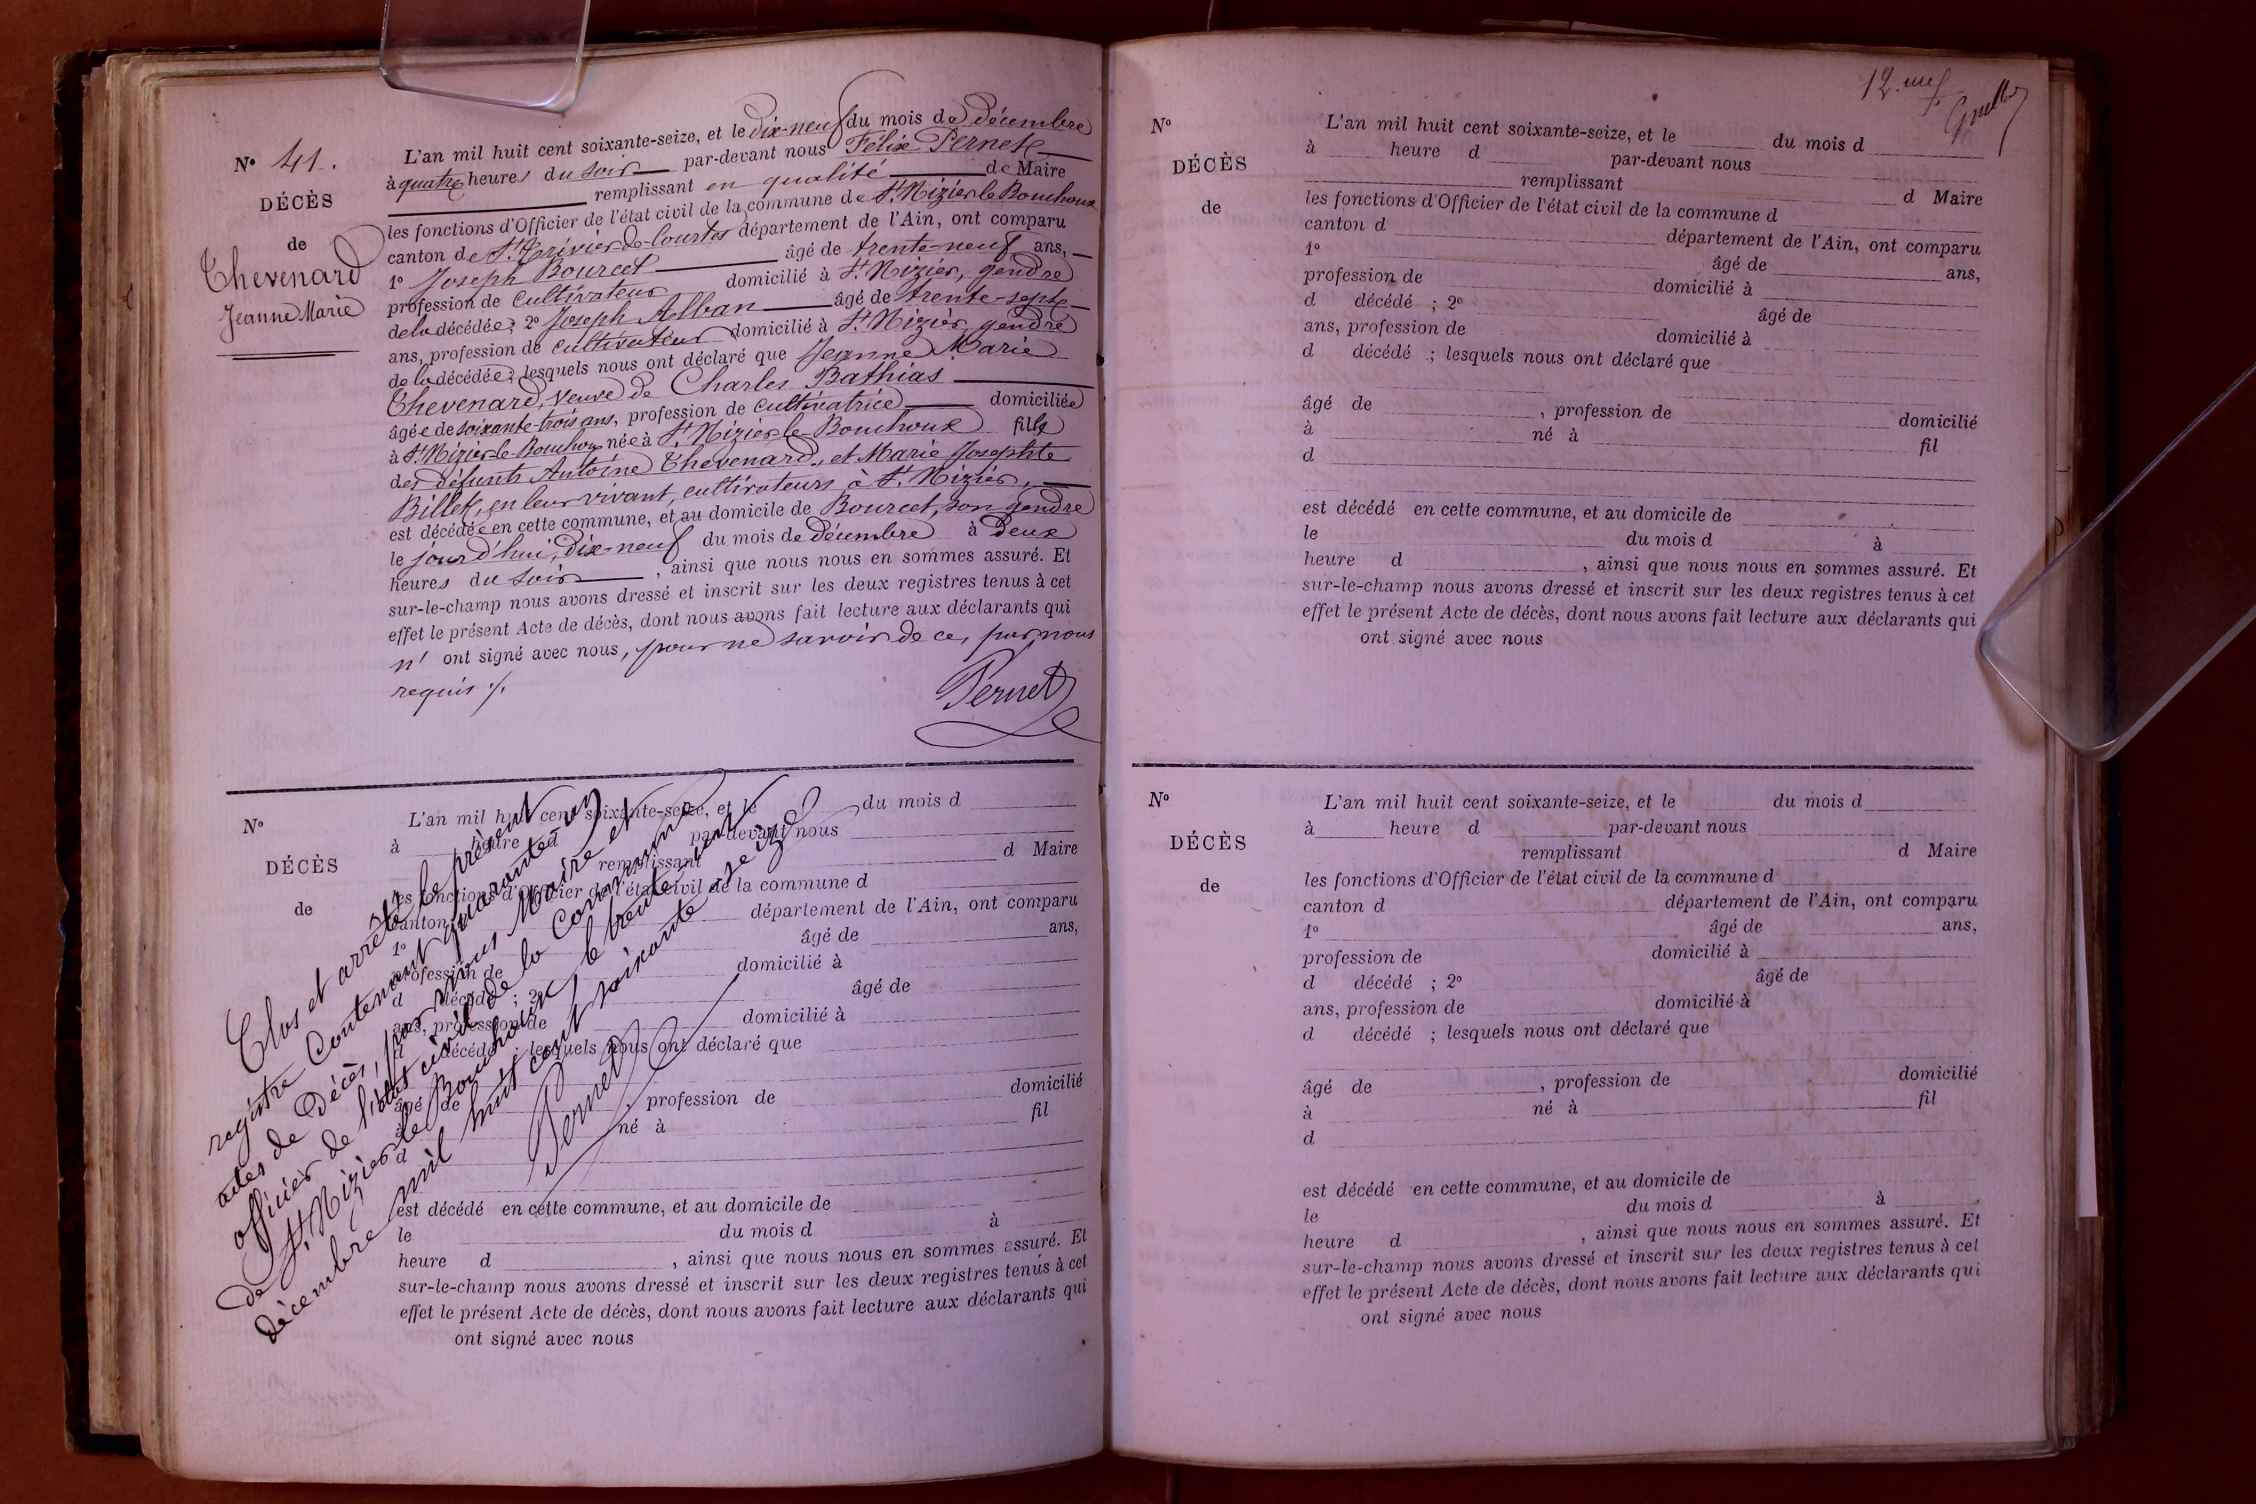 N° 41.
DÉCÈS
de
Thevenard
Jeanne Marie
L'an mil huit cent soixante-seize, et le dix-neuf du mois de décembre
à quatre heures du soir par-devant nous Félix Pernet
remplissant en qualité de Maire
les fonctions d'Officier de l'état civil de la commune de St Nizier le Bouchoux
canton de St Trivier-de-Courtes département de l'Ain, ont comparu
1° Joseph Bourcet âgé de trente-neuf ans,
profession de cultivateur domicilié à St Nizier, gendre
de la décédée; 2° Joseph Alban âgé de trente-sept
ans, profession de cultivateur domicilié à St Nizier, gendre
de la décédée; lesquels nous ont déclaré que Jeanne Marie
Thevenard, veuve de Charles Bathias
âgée de soixante-trois ans, profession de cultivatrice domiciliée
à St Nizier-le-Bouchoux née à St Nizier-le-Bouchoux fille
des défunts Antoine Thevenard, et Marie Josephte
Billet, en leur vivant, cultivateurs à St Nizier,
est décédée en cette commune, et au domicile de Bourcet, son gendre
le jourd'hui, dix-neuf du mois de décembre à deux
heures du soir, ainsi que nous nous en sommes assuré. Et
sur-le-champ nous avons dressé et inscrit sur les deux registres tenus à cet
effet le présent Acte de décès, dont nous avons fait lecture aux déclarants qui
n' ont signé avec nous, pour ne savoir de ce, par nous
requis ./.
Pernet
N°
DÉCÈS
de
L'an mil huit cent soixante-seize, et le du mois d
à heure d par-devant nous
remplissant d Maire
les fonctions d'Officier de l'état civil de la commune d
canton d département de l'Ain, ont comparu
1° âgé de ans,
profession de domicilié à
d décédé ; 2° âgé de
ans, profession de domicilié à
d décédé ; lesquels nous ont déclaré que
âgé de , profession de domicilié
à né à fil
d
est décédé en cette commune, et au domicile de
le du mois d à
heure d , ainsi que nous nous en sommes assuré. Et
sur-le-champ nous avons dressé et inscrit sur les deux registres tenus à cet
effet le présent Acte de décès, dont nous avons fait lecture aux déclarants qui
ont signé avec nous
Clos et arrêté le présent
registre Contenant quarante un
actes de Décès, par nous Maire et
officier de l'état civil de la Commune
de St Nizier le Bouchoux, le trente un
décembre mil huit cent soixante seize
Pernet
12.me f
N°
DÉCÈS
de
L'an mil huit cent soixante-seize, et le du mois d
à heure d par-devant nous
remplissant d Maire
les fonctions d'Officier de l'état civil de la commune d
canton d département de l'Ain, ont comparu
1° âgé de ans,
profession de domicilié à
d décédé ; 2° âgé de
ans, profession de domicilié à
d décédé ; lesquels nous ont déclaré que
âgé de , profession de domicilié
à né à fil
d
est décédé en cette commune, et au domicile de
le du mois d à
heure d , ainsi que nous nous en sommes assuré. Et
sur-le-champ nous avons dressé et inscrit sur les deux registres tenus à cet
effet le présent Acte de décès, dont nous avons fait lecture aux déclarants qui
ont signé avec nous
N°
DÉCÈS
de
L'an mil huit cent soixante-seize, et le du mois d
à heure d par-devant nous
remplissant d Maire
les fonctions d'Officier de l'état civil de la commune d
canton d département de l'Ain, ont comparu
1° âgé de ans,
profession de domicilié à
d décédé ; 2° âgé de
ans, profession de domicilié à
d décédé ; lesquels nous ont déclaré que
âgé de , profession de domicilié
à né à fil
d
est décédé en cette commune, et au domicile de
le du mois d à
heure d , ainsi que nous nous en sommes assuré. Et
sur-le-champ nous avons dressé et inscrit sur les deux registres tenus à cet
effet le présent Acte de décès, dont nous avons fait lecture aux déclarants qui
ont signé avec nous